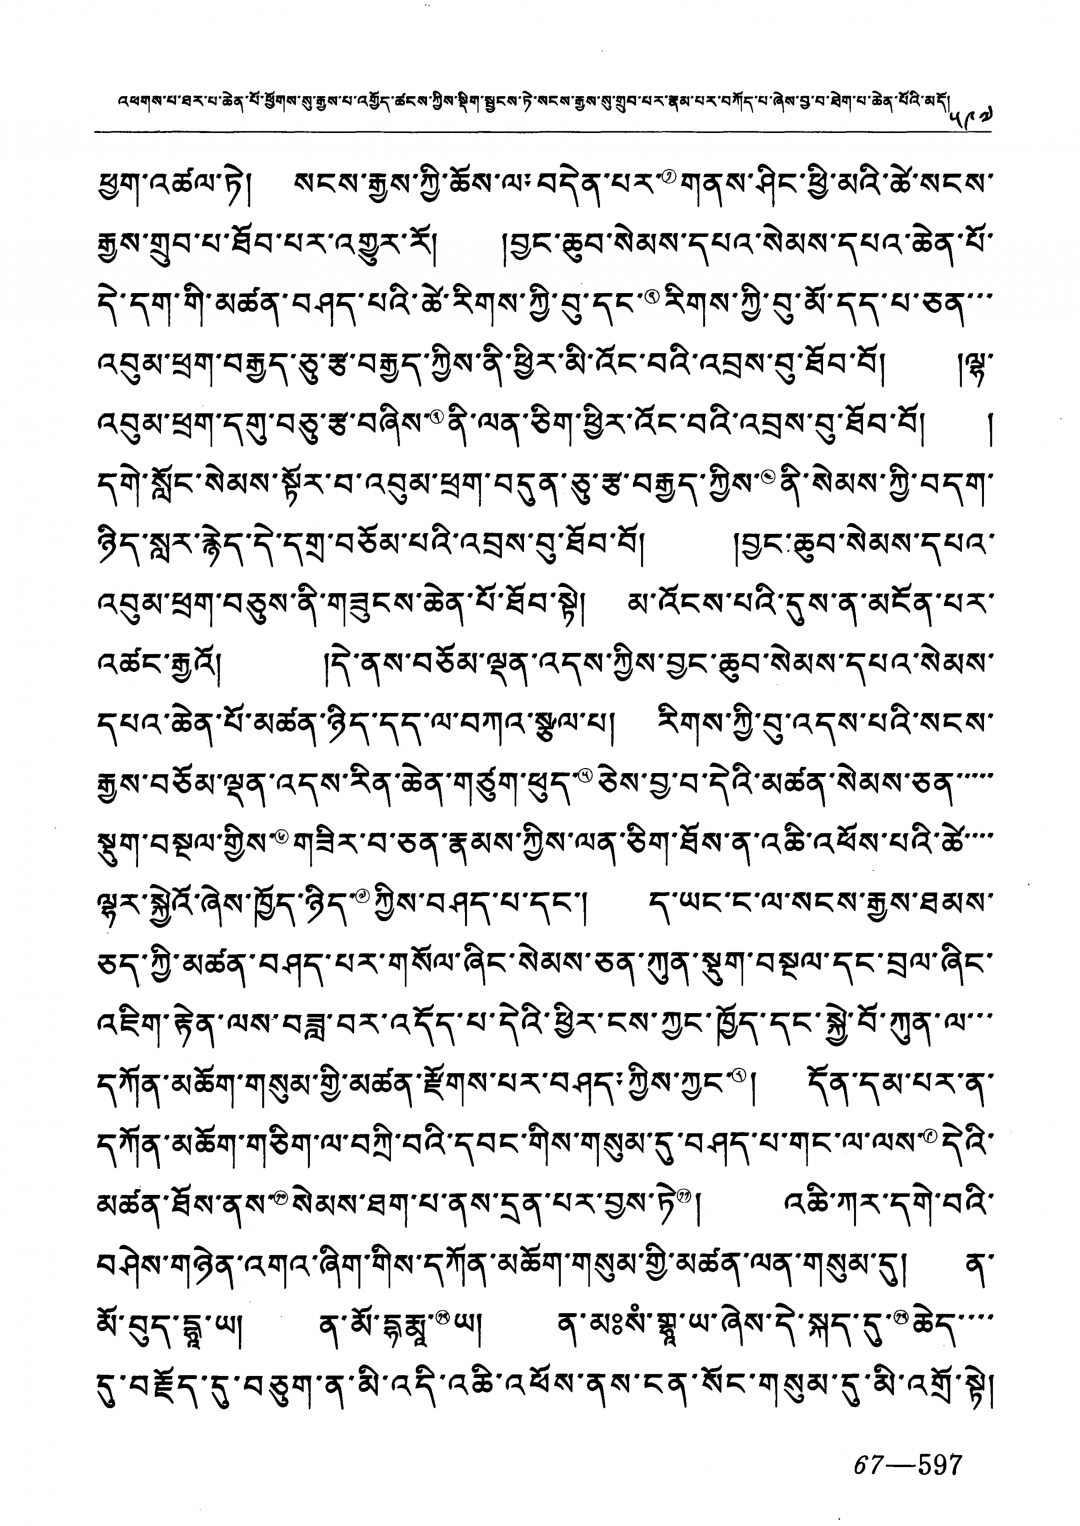 འཕགས་པ་ཐར་པ་ཆེན་པོ་ཕྱོགས་སུ་རྒྱས་པ་འགྱོད་ཚངས་ཀྱིས་སྡིག་སྦྱངས་ཏེ་སངས་རྒྱས་སུ་གྲུབ་པར་རྣམ་པར་བཀོད་པ་ཞེས་བྱ་བ་ཐེག་པ་ཆེན་པོའི་མདོ། ༥༩༧
ཕྱག་འཚལ་ཏེ། སངས་རྒྱས་ཀྱི་ཆོས་ལ་བདེན་པར་① གནས་ཤིང་ཕྱི་མའི་ཚེ་སངས་
རྒྱས་གྲུབ་པ་ཐོབ་པར་འགྱུར་རོ། །བྱང་ཆུབ་སེམས་དཔའ་སེམས་དཔའ་ཆེན་པོ་
དེ་དག་གི་མཚན་བཤད་པའི་ཚེ་རིགས་ཀྱི་བུ་དང་② རིགས་ཀྱི་བུ་མོ་དད་པ་ཅན་
འབུམ་ཕྲག་བརྒྱད་ཅུ་རྩ་བརྒྱད་ཀྱིས་ནི་ཕྱིར་མི་འོང་བའི་འབྲས་བུ་ཐོབ་བོ། །ལྷ་
འབུམ་ཕྲག་དགུ་བཅུ་རྩ་བཞིས་③ ནི་ལན་ཅིག་ཕྱིར་འོང་བའི་འབྲས་བུ་ཐོབ་བོ། །
དགེ་སློང་སེམས་སྟོར་བ་འབུམ་ཕྲག་བདུན་ཅུ་རྩ་བརྒྱད་ཀྱིས་④ ནི་སེམས་ཀྱི་བདག་
ཉིད་སླར་རྙེད་དེ་དགྲ་བཅོམ་པའི་འབྲས་བུ་ཐོབ་བོ། །བྱང་ཆུབ་སེམས་དཔའ་
འབུམ་ཕྲག་བཅུས་ནི་གཟུངས་ཆེན་པོ་ཐོབ་སྟེ། མ་འོངས་པའི་དུས་ན་མངོན་པར་
འཚང་རྒྱའོ། །དེ་ནས་བཅོམ་ལྡན་འདས་ཀྱིས་བྱང་ཆུབ་སེམས་དཔའ་སེམས་
དཔའ་ཆེན་པོ་མཚན་ཉིད་དད་ལ་བཀའ་སྩལ་པ། རིགས་ཀྱི་བུ་འདས་པའི་སངས་
རྒྱས་བཅོམ་ལྡན་འདས་རིན་ཆེན་གཙུག་ཕུད་⑤ ཅེས་བྱ་བ་དེའི་མཚན་སེམས་ཅན་
སྡུག་བསྔལ་གྱིས་⑥ གཟིར་བ་ཅན་རྣམས་ཀྱིས་ལན་ཅིག་ཐོས་ན་འཆི་འཕོས་པའི་ཚེ་
ལྷར་སྐྱེའོ་ཞེས་ཁྱོད་ཉིད་⑦ ཀྱིས་བཤད་པ་དང་། ད་ཡང་ང་ལ་སངས་རྒྱས་ཐམས་
ཅད་ཀྱི་མཚན་བཤད་པར་གསོལ་ཞིང་སེམས་ཅན་ཀུན་སྡུག་བསྔལ་དང་བྲལ་ཞིང་
འཇིག་རྟེན་ལས་བཟླ་བར་འདོད་པ་དེའི་ཕྱིར་ངས་ཀྱང་ཁྱོད་དང་སྐྱེ་བོ་ཀུན་ལ་
དཀོན་མཆོག་གསུམ་གྱི་མཚན་རྫོགས་པར་བཤད་ཀྱིས་ཀྱང་⑧། དོན་དམ་པར་ན་
དཀོན་མཆོག་གཅིག་ལ་བཀྲི་བའི་དབང་གིས་གསུམ་དུ་བཤད་པ་གང་ལ་ལས་⑨ དེའི་
མཚན་ཐོས་ནས་⑩ སེམས་ཐག་པ་ནས་དྲན་པར་བྱས་ཏེ⑪། འཆི་ཀར་དགེ་བའི་
བཤེས་གཉེན་འགའ་ཞིག་གིས་དཀོན་མཆོག་གསུམ་གྱི་མཚན་ལན་གསུམ་དུ། ན་
མོ་བུད་དྷཱ་ཡ། ན་མོ་དྷརྨཱ་⑫ ཡ། ན་མཿསཾ་གྷཱ་ཡ་ཞེས་དེ་སྐད་དུ་⑬ ཆེད་
དུ་བརྗོད་དུ་བཅུག་ན་མི་འདི་འཆི་འཕོས་ནས་ངན་སོང་གསུམ་དུ་མི་འགྲོ་སྟེ།
67—597